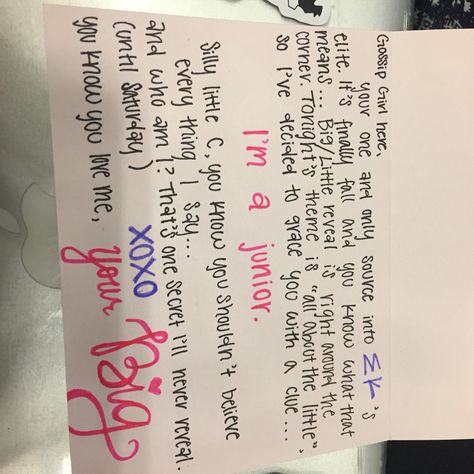 Gossip Girl here.
your one and only source into ΣK's
elite. It's finally fall and you know what that
means... Big/Little reveal is right around the
corner. Tonight's theme is "all about the little",
so I've decided to grace you with a clue...
I'm a junior.
Silly little C, you know you shouldn't believe
every thing I say...
and who am I? That's one secret I'll never reveal.
(until Saturday)
you know you love me,
XOXO
your Big